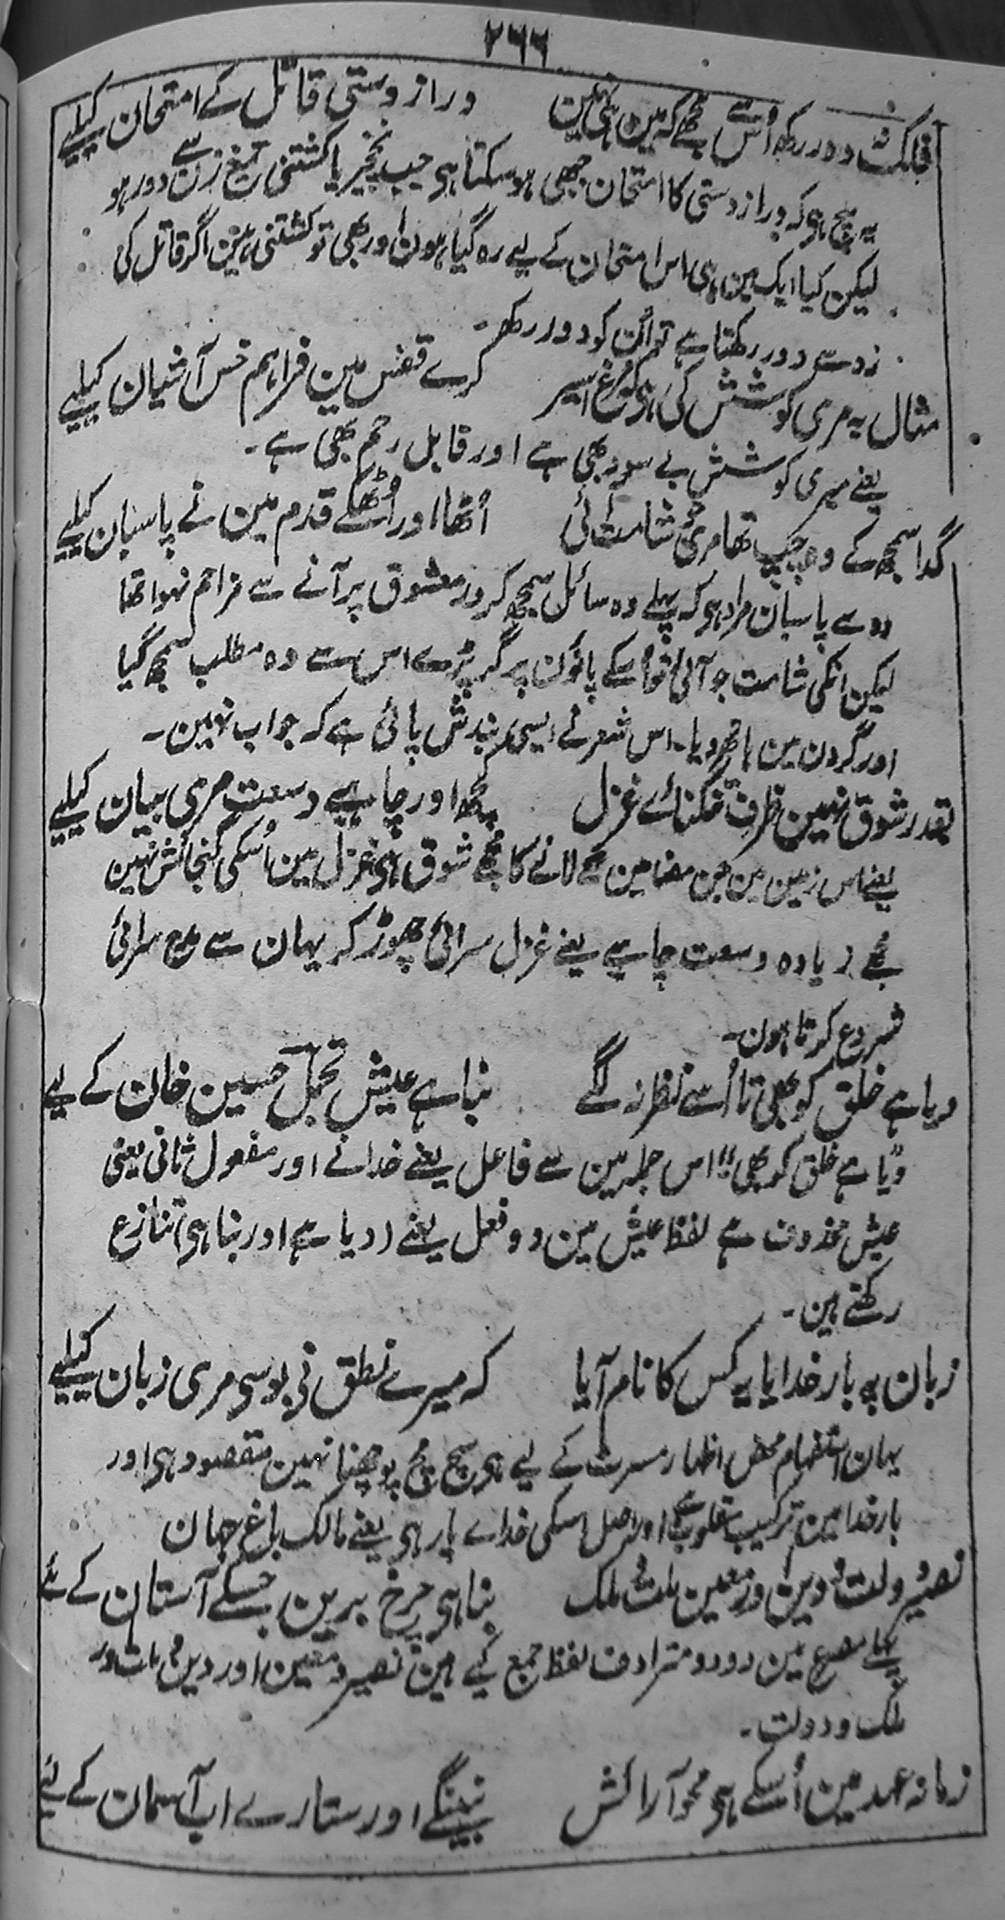 ۲۶۶
فلک نہ دور رکھ اُس سے مجھے کہ مین ہی نہین دراز دستی قاتل کے امتحان کیلیے
یہ سچ ہی کہ دراز دستی کا امتحان جبھی ہوسکتا ہی جب نخچیر یا کشتنی تیغ زن سے دور ہو
لیکن کیا ایک مین ہی اس امتحان کے لیے رہ گیا ہون اور بھی تو کشتنی ہین اگر قاتل کی
زد سے دور رکھتا ہے تو اُن کو دور رکھ۔
مثال یہ مری کوشش کی ہی کہ مرغ اسیر کرے قفس مین فراہم خس آشیان کیلیے
یعنے میری کوشش بے سود بھی ہے اور قابل رحم بھی ہے۔
گدا سمجھ کے وہ چپ تھا مری شامت آئی اُٹھا اور اُٹھکے قدم مین نے پاسبان کیلیے
وہ سے پاسبان مراد ہی کہ پہلے وہ سائل سمجھ کر در معشوق پر آنے سے مزاحم نہوا تھا
لیکن انکی شامت جو آئی تو اُسکے پانون پر گر پڑے اس سے وہ مطلب سمجھ گیا
اور گردن مین ہاتھ دیا۔ اس شعر نے ایسی بندش پائی ہے کہ جواب نہین۔
بقدر شوق نہین ظرف تنگنائے غزل کچھ اور چاہیے وسعت مری بیان کیلیے
یعنے اس زمین مین جن مضامین کے لانے کا مجھے شوق ہی غزل مین اُسکی گنجائش نہین
مجھے زیادہ وسعت چاہیے یعنے غزل سرائی چھوڑ کر یہان سے مدح سرائی
شروع کرتا ہون۔
دیا ہے خلق کو بھی تا اُسے نظر نہ لگے بنا ہے عیش تجمّل حسین خان کے لیے
دیا ہے خلق کو بھی اس جملہ مین سے فاعل یعنے خدا نے اور مفعول ثانی یعنی
عیش محذوف ہے لفظ عیش مین دو فعل یعنے (دیا ہے اور بنا ہی) تنازع
رکھتے ہین۔
زبان پہ بار خدایا یہ کس کا نام آیا کہ میرے نطق نی بوسی مری زبان کیلیے
یہان استفہام محض اظہار مسرت کے لیے ہی سچ مچ پوچھنا نہین مقصود ہی اور
بار خدا مین ترکیب مقلوب ہے اور اصل اسکی خداے بار ہی یعنے مالک باغ جہان
نصیر دولت و دین اور معین ملت و ملک بنا ہی چرخ برین جسکے آستان کے لئے
پہلے مصرع مین دو دو مترادف لفظ جمع کیے ہین نصیر و معین اور دین و ملت اور
ملک و دولت۔
زمانہ عہد مین اُسکے ہی محو آرائش بنینگے اور ستارے اب آسمان کے لئے